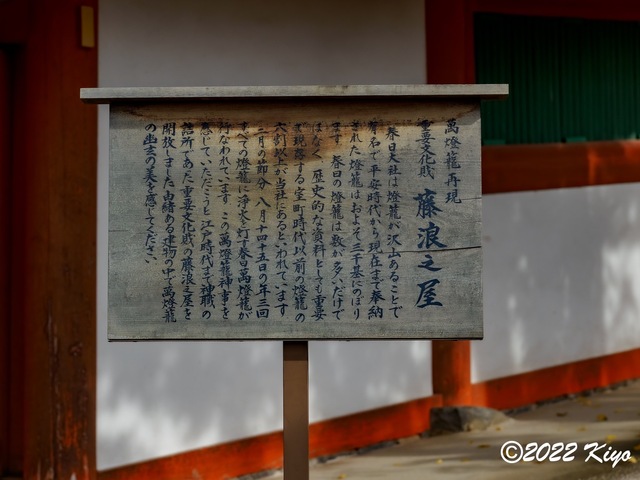 萬燈籠再現
重要文化財 藤浪之屋
春日大社は燈籠が沢山あることで
有名で平安時代から現在まで奉納
された燈籠はおよそ三千基にのぼり
ます 春日の燈籠は数が多いだけで
はなく 歴史的な資料としても重要
で現存する室町時代以前の燈籠の
六割以上が当社にあるといわれています
二月の節分 八月十四十五日の年三回
すべての燈籠に浄火を灯す春日萬燈籠が
行なわれています この萬燈籠神事を
感じていただこうと江戸時代まで神職の
詰所であった重要文化財の藤浪之屋を
開放しました 由緒ある建物の中で萬燈籠
の幽玄の美を感じてください
©2022 Kiyo